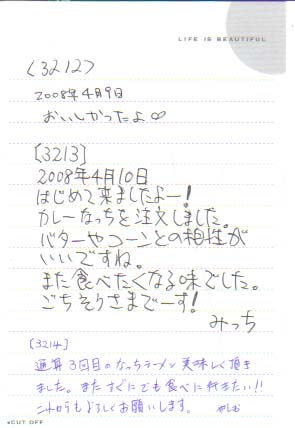 LIFE IS BEAUTIFUL
<3212>
2008年4月9日
おいしかったよ∞
[3213]
2008年4月10日
はじめて来ましたよー!
カレーなっちを注文しました。
バターやコーンとの相性が
いいですね。
また食べたくなる味でした。
ごちそうさまでーす!
みっち
[3214]
通算3回目のなっちラーメン美味しく頂き
ました。またすぐにでも食べに行きたい!!
これからもよろしくお願いします。
CUT OFF